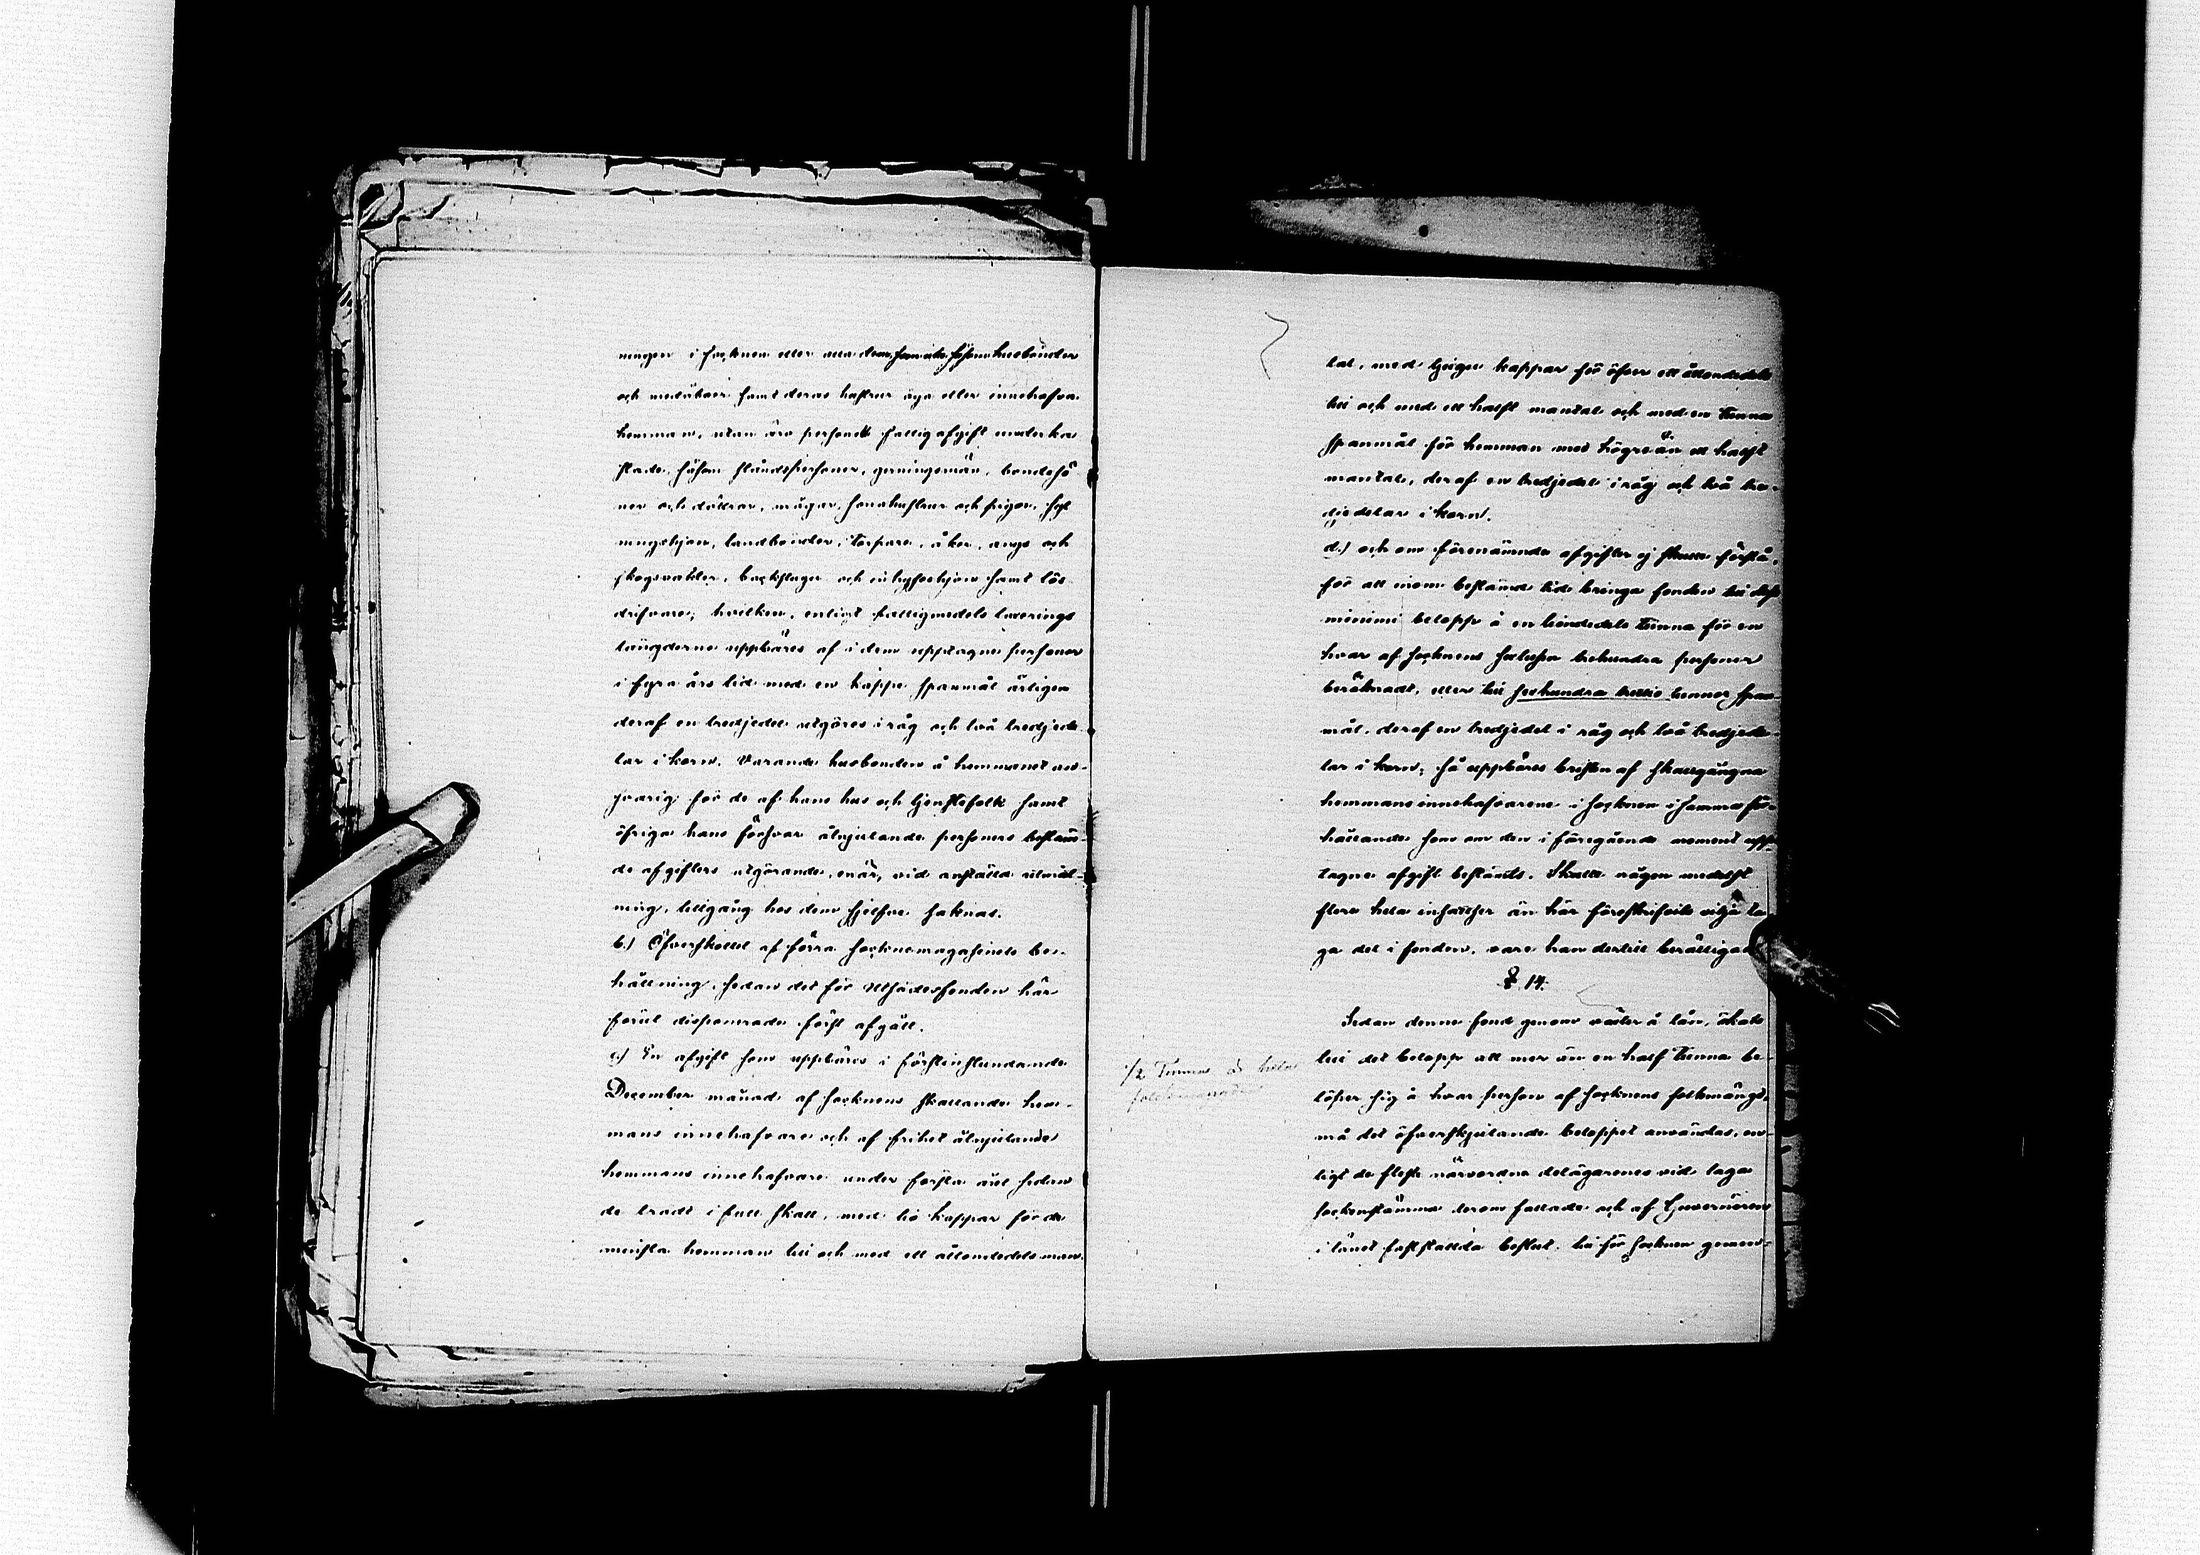 ningen i socknen eller alla dem, som icke såsom husbönder
och matmödrar samt deras hustrur äga eller innehafva
hemman, utan äro personlig fattigafgift underka
stade, såsom ståndspersoner, gerningsmän, bondesö
ner och döttrar, mågar, sonahustrur och pigor, syt
ningshjon, landbönder, torpare, åker, ängs och
skogsvakter, backstugu och inhyseshjon samt lös
drifvare; hvilken, enligt fattigmedels taxerings
längderne uppbäres af i dem upptagne personer
i fyra års tid med en kappe spannmål årligen
deraf en tredjedel utgöres i råg och två tredjede
lar i korn. Varande husbonden å hemmanet an-
svarig för de af hans hus och tjenstefolk samt
öfriga hans försvar åtnjutande personers bestäm-
de afgifters utgörande, når, vid anställd utmät-
ning, tillgång hos dem sjelfve saknas.
b.) Öfverskottet af förra socknemagasinets be-
hållning, sedan det för Utsädesfonden här
förut disponerade först afgått.
c.) En afgift som uppbäres i förstinstundande
December månad af socknens skattande hem-
mans innehafvare och af frihet åtnjutande
hemmans innehafvare under första året sedan
de trädt i full skatt, med tio kappar för de
minsta hemman till och med ett åttondedels man-
tal, med tjugu kappar för öfver ett åttondedels
till och med ett halft mantal och med en tunna
spannmål för hemman med högre än ett halft
mantal, deraf en tredjedel i råg och två tre-
djedelar i korn.
d.) och om förenämnde afgifter ej skulle förslå,
för att inom bestämd tid bringa fonden till dess
minimi belopp å en tiondedels tunna för en
hvar af socknens sextusen trehundra personer
beräknadt, eller till sexhundra trettio tunnor span-
mål, deraf en tredjedel i råg och två tredjede-
lar i korn, så uppbäres bristen af skattgångna
hemmansinnehafvarene i socknen i samma för-
hållande som om den i föregående moment upp-
tagne afgift bestämts. Skulle någon medelst
flere hela insatser än här föreskrifvits vilja ta
ga del i fonden, vare han dertill berättigad
§ 14.
Sedan denne fond genom räntor å lån, ökats
till det belopp att mer än en half tunna be-
löper sig å hvar person af socknens folkmängd,
må det öfverskjutande beloppet användas, en-
ligt de fleste närvarande delägarenes vid laga
sockenstämma derom fattade och af Guvernören
i länet fastställda beslut, till för socknen gemen-
1/2 Tunna å hela
folkmängden